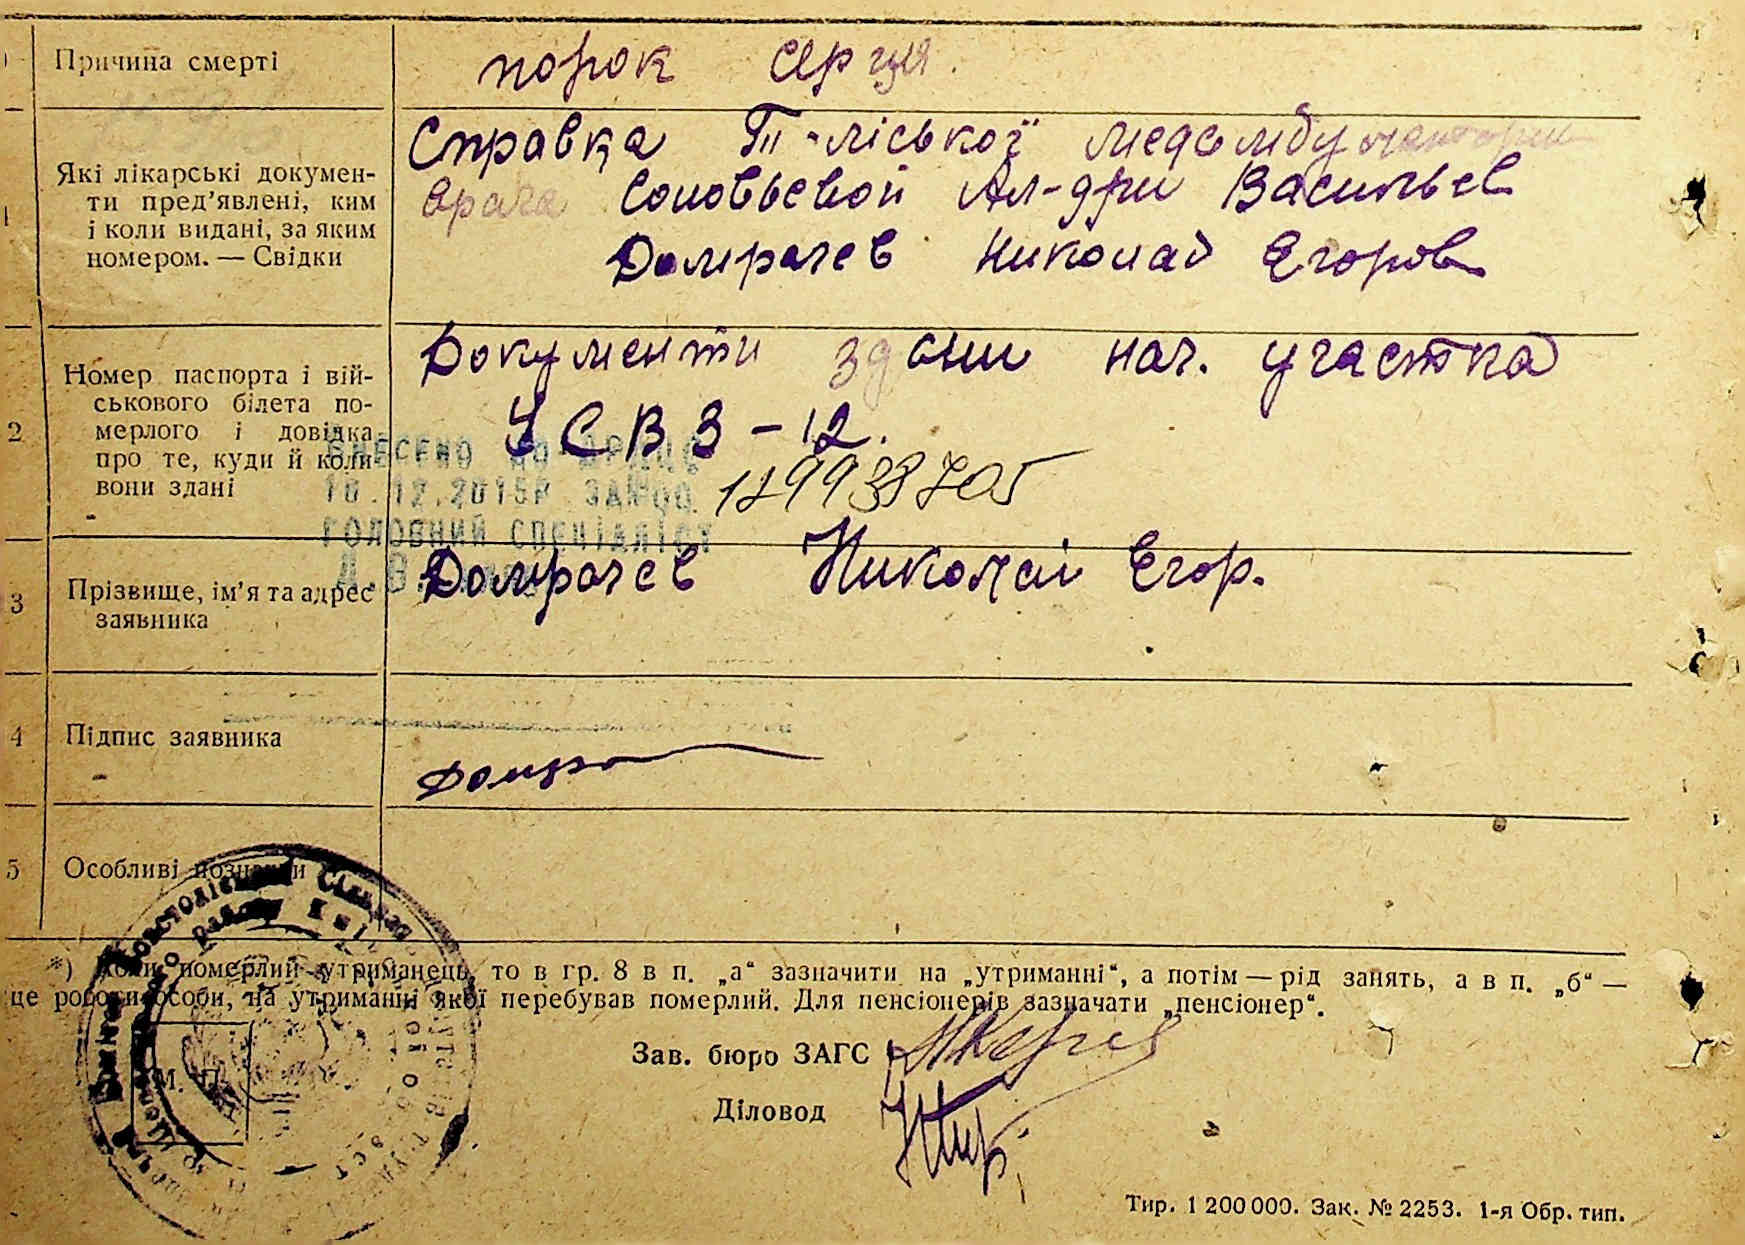 Причина смерті
порок серця.
Які лікарські докумен-
ти пред'явлені, ким
і коли видані, за яким
номером. — Свідки
Справка Тп-міської медамбулатории
врача Соловьевой Ал-дри Васильев
Домрачев Николай Егоров
2
Номер паспорта і вій-
ськового білета по-
мерлого і довідка
про те, куди й коли
вони здані
Документи здани нач. участка
УСВЗ-12.
ВНЕСЕНО ДО
18.12.2015Р
ГОЛОВНИЙ СПЕЦІАЛІСТ
129938705
3
Прізвище, ім'я та адрес
заявника
Домрачев Николай Егор.
4
Підпис заявника
5
Особливі позначки
*) Коли померлий утриманець, то в гр. 8 в п. „а“ зазначити на „утриманні“, а потім — рід занять, а в п. „б“ —
це роботи особи, на утриманні якої перебував померлий. Для пенсіонерів зазначати „пенсіонер“.
М. П.
Зав. бюро ЗАГС
Діловод
Тир. 1 200 000. Зак. № 2253. 1-я Обр. тип.